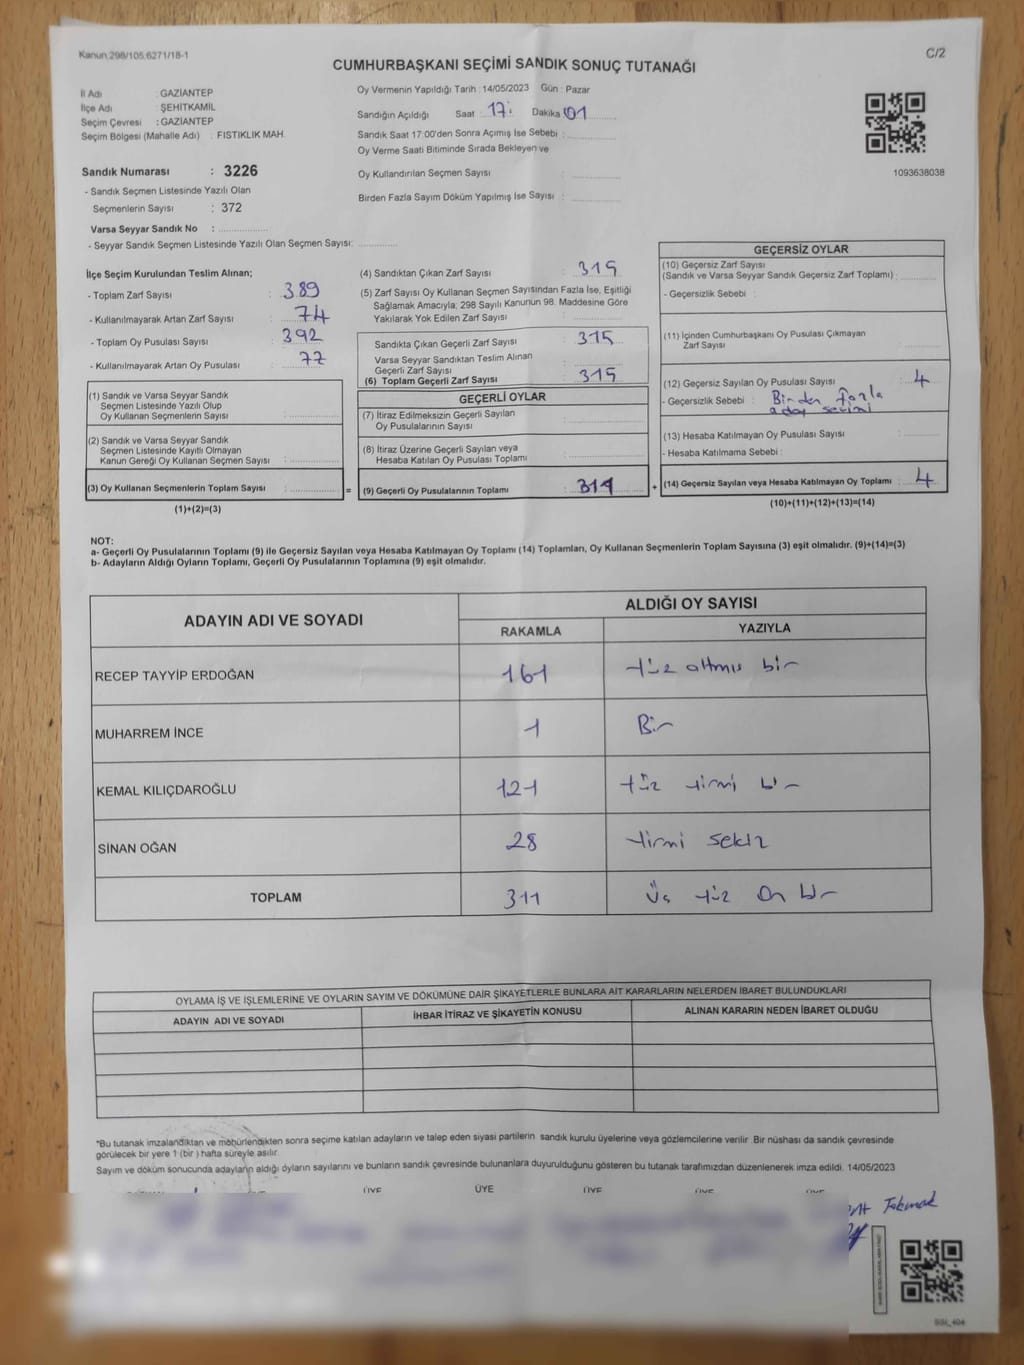 Kanun:298/105,6271/18-1
C/2
CUMHURBAŞKANI SEÇİMİ SANDIK SONUÇ TUTANAĞI
İl Adı : GAZİANTEP
İlçe Adı : ŞEHİTKAMİL
Seçim Çevresi : GAZİANTEP
Seçim Bölgesi (Mahalle Adı) : FISTIKLIK MAH.
Sandık Numarası : 3226
- Sandık Seçmen Listesinde Yazılı Olan
Seçmenlerin Sayısı : 372
Varsa Seyyar Sandık No :
- Seyyar Sandık Seçmen Listesinde Yazılı Olan Seçmen Sayısı:
Oy Vermenin Yapıldığı Tarih : 14/05/2023 Gün : Pazar
Sandığın Açıldığı Saat : 17: Dakika : 01
Sandık Saat 17:00'den Sonra Açımış İse Sebebi :
Oy Verme Saati Bitiminde Sırada Bekleyen ve
Oy Kullandırılan Seçmen Sayısı :
Birden Fazla Sayım Döküm Yapılmış İse Sayısı :
1093638038
İlçe Seçim Kurulundan Teslim Alınan;
- Toplam Zarf Sayısı : 389
- Kullanılmayarak Artan Zarf Sayısı : 74
- Toplam Oy Pusulası Sayısı : 392
- Kullanılmayarak Artan Oy Pusulası : 77
(1) Sandık ve Varsa Seyyar Sandık
Seçmen Listesinde Yazılı Olup
Oy Kullanan Seçmenlerin Sayısı :
(2) Sandık ve Varsa Seyyar Sandık
Seçmen Listesinde Kayıtlı Olmayan
Kanun Gereği Oy Kullanan Seçmen Sayısı :
(3) Oy Kullanan Seçmenlerin Toplam Sayısı :
(1)+(2)=(3)
=
(4) Sandıktan Çıkan Zarf Sayısı : 315
(5) Zarf Sayısı Oy Kullanan Seçmen Sayısından Fazla İse, Eşitliği
Sağlamak Amacıyla; 298 Sayılı Kanunun 98. Maddesine Göre
Yakılarak Yok Edilen Zarf Sayısı :
Sandıkta Çıkan Geçerli Zarf Sayısı : 315
Varsa Seyyar Sandıktan Teslim Alınan
Geçerli Zarf Sayısı :
(6) Toplam Geçerli Zarf Sayısı : 315
GEÇERLİ OYLAR
(7) İtiraz Edilmeksizin Geçerli Sayılan
Oy Pusulalarının Sayısı :
(8) İtiraz Üzerine Geçerli Sayılan veya
Hesaba Katılan Oy Pusulası Toplamı :
(9) Geçerli Oy Pusulalarının Toplamı : 311
+
GEÇERSİZ OYLAR
(10) Geçersiz Zarf Sayısı
(Sandık ve Varsa Seyyar Sandık Geçersiz Zarf Toplamı) :
- Geçersizlik Sebebi :
(11) İçinden Cumhurbaşkanı Oy Pusulası Çıkmayan
Zarf Sayısı :
(12) Geçersiz Sayılan Oy Pusulası Sayısı : 4
- Geçersizlik Sebebi : Birden fazla
aday seçimi
(13) Hesaba Katılmayan Oy Pusulası Sayısı :
- Hesaba Katılmama Sebebi :
(14) Geçersiz Sayılan veya Hesaba Katılmayan Oy Toplamı : 4
(10)+(11)+(12)+(13)=(14)
NOT:
a- Geçerli Oy Pusulalarının Toplamı (9) ile Geçersiz Sayılan veya Hesaba Katılmayan Oy Toplamı (14) Toplamları, Oy Kullanan Seçmenlerin Toplam Sayısına (3) eşit olmalıdır. (9)+(14)=(3)
b- Adayların Aldığı Oyların Toplamı, Geçerli Oy Pusulalarının Toplamına (9) eşit olmalıdır.
ADAYIN ADI VE SOYADI
ALDIĞI OY SAYISI
RAKAMLA YAZIYLA
RECEP TAYYİP ERDOĞAN 161 Yüz altmış bir
MUHARREM İNCE 1 Bir
KEMAL KILIÇDAROĞLU 121 Yüz yirmi bir
SİNAN OĞAN 28 Yirmi sekiz
TOPLAM 311 Üç yüz on bir
OYLAMA İŞ VE İŞLEMLERİNE VE OYLARIN SAYIM VE DÖKÜMÜNE DAİR ŞİKAYETLERLE BUNLARA AİT KARARLARIN NELERDEN İBARET BULUNDUKLARI
ADAYIN ADI VE SOYADI İHBAR İTİRAZ VE ŞİKAYETİN KONUSU ALINAN KARARIN NEDEN İBARET OLDUĞU
*Bu tutanak imzalandıktan ve mühürlendikten sonra seçime katılan adayların ve talep eden siyasi partilerin sandık kurulu üyelerine veya gözlemcilerine verilir. Bir nüshası da sandık çevresinde
görülecek bir yere 1 (bir) hafta süreyle asılır.
Sayım ve döküm sonucunda adayların aldığı oyların sayılarını ve bunların sandık çevresinde bulunanlara duyurulduğunu gösteren bu tutanak tarafımızdan düzenlenerek imza edildi. 14/05/2023
ÜYE ÜYE ÜYE ÜYE ÜYE
Tokmak